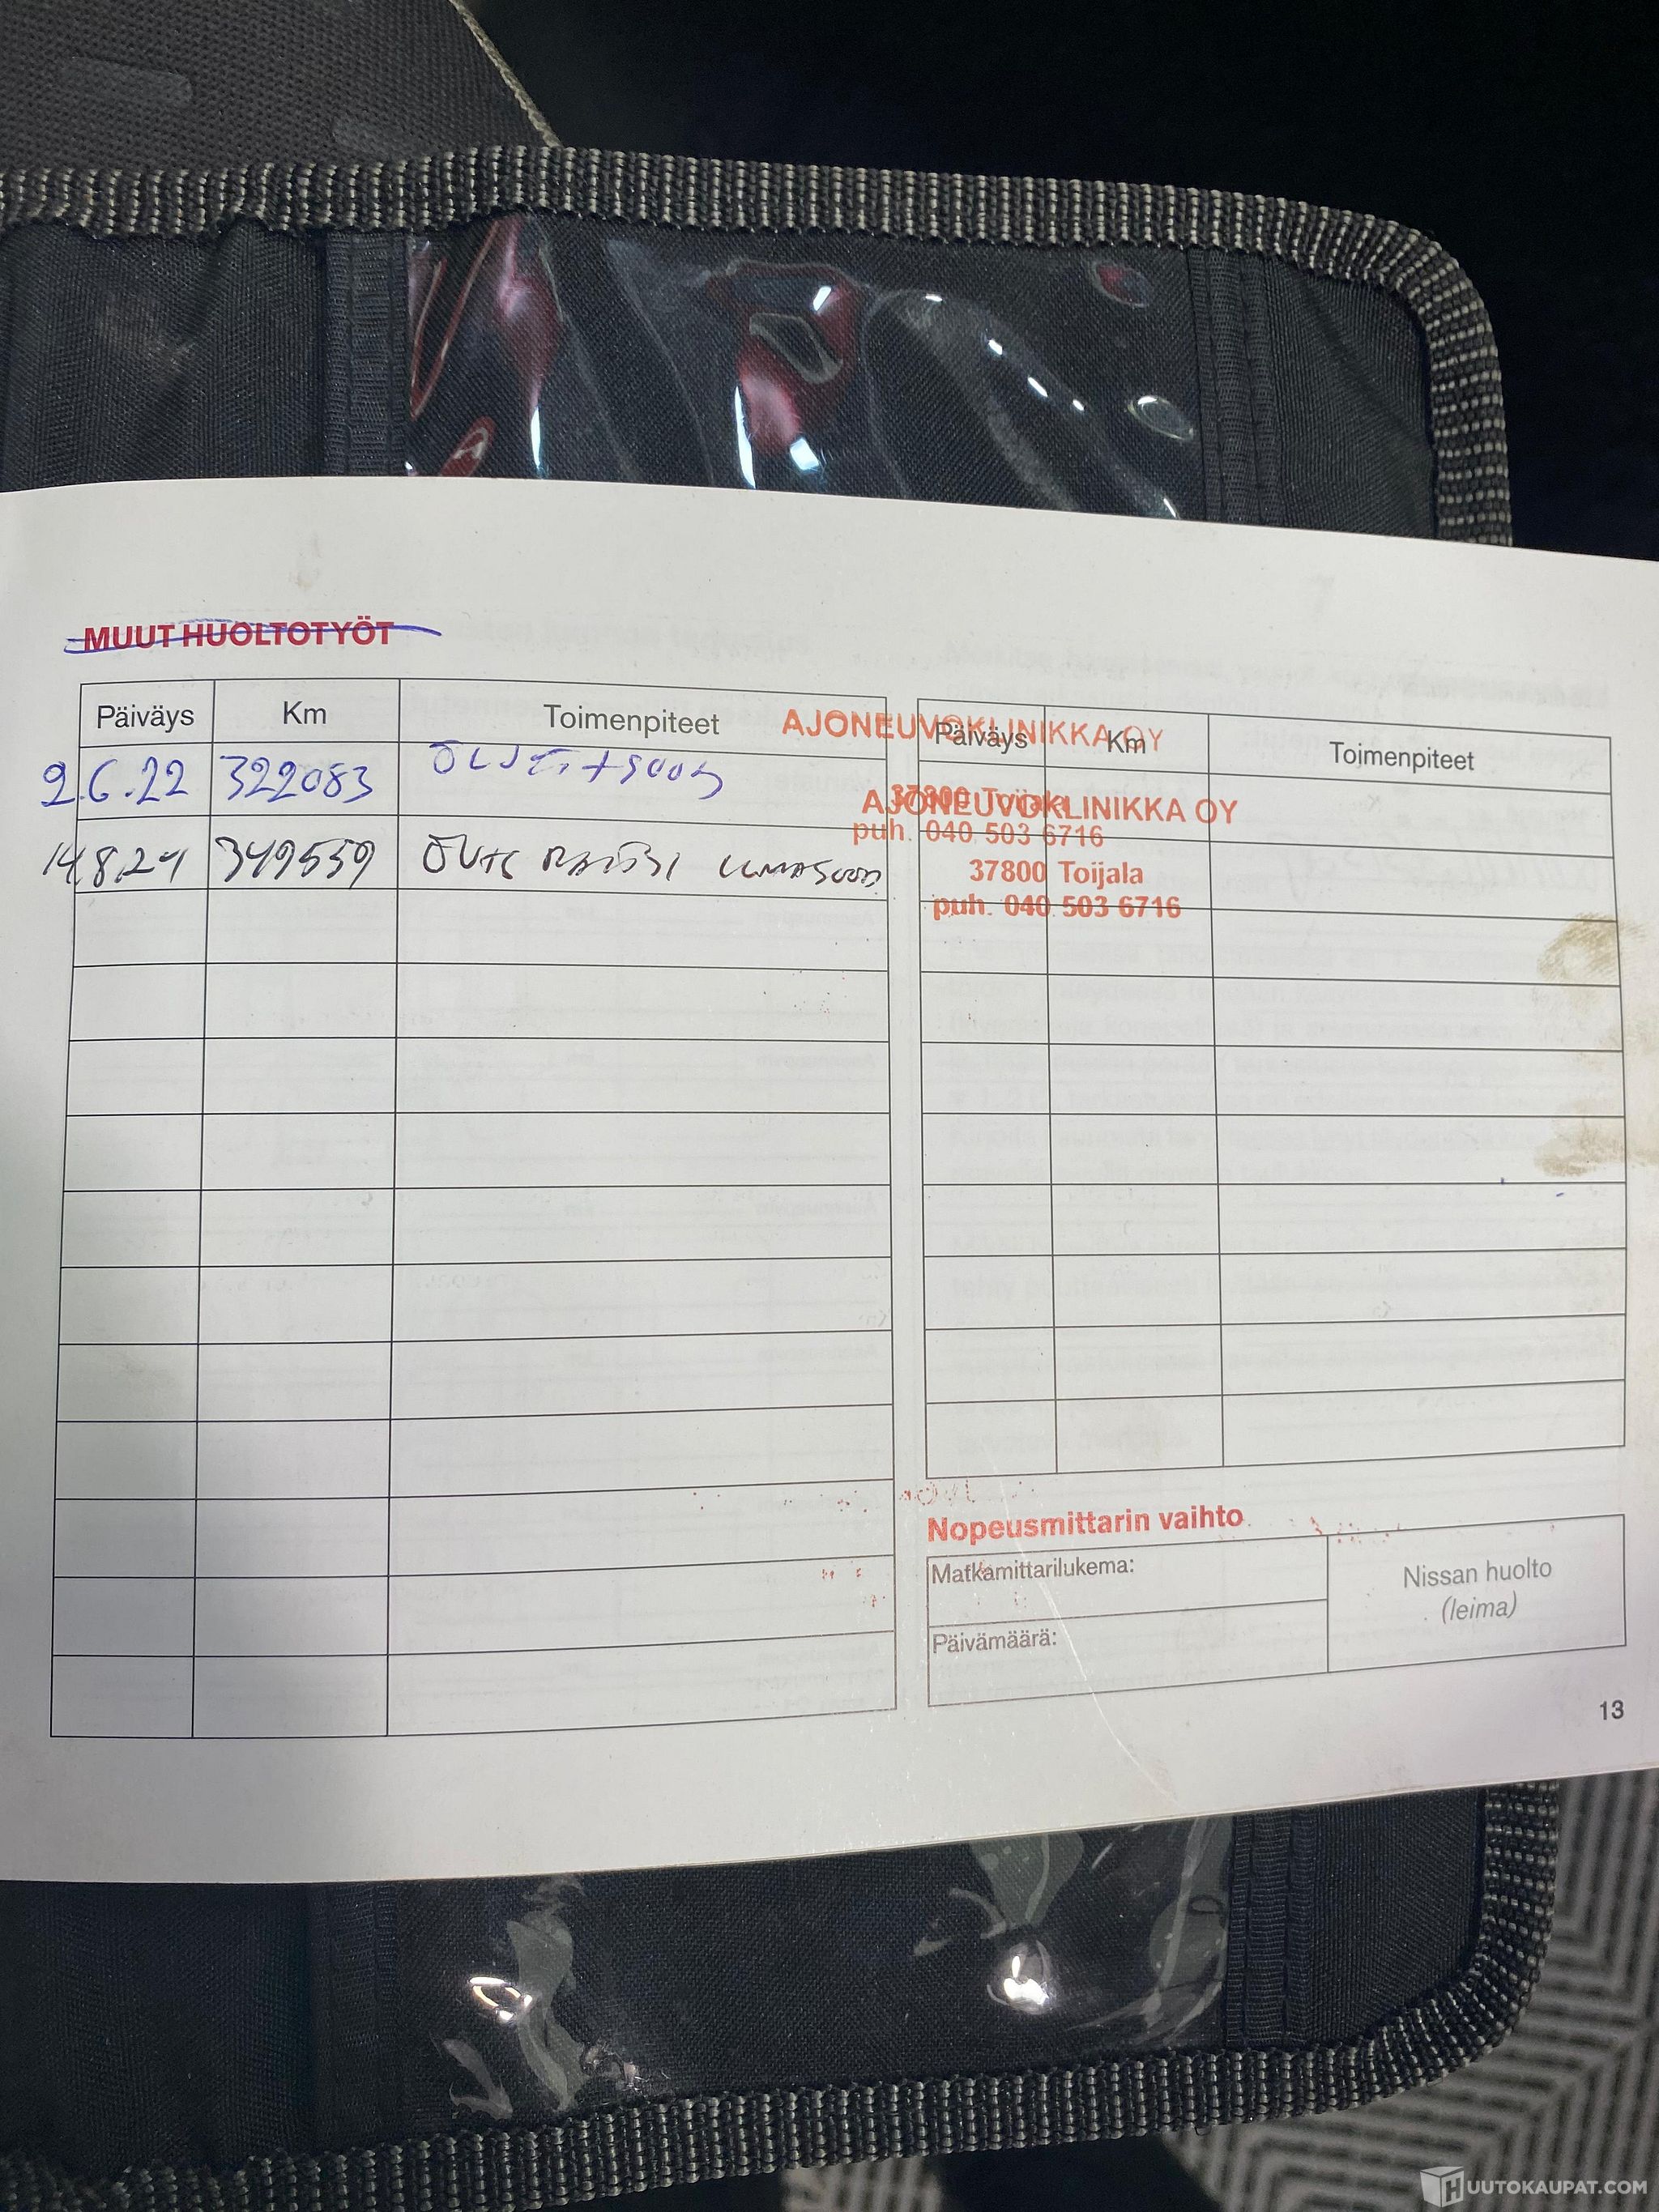 MUUT HUOLTOTYÖT
Päiväys Km Toimenpiteet
2.6.22 322083
14.8.24 349559
AJONEUVOKLINIKKA OY
Päiväys Km Toimenpiteet
37800 Toijala
AJONEUVOKLINIKKA OY
puh. 040 503 6716
37800 Toijala
puh. 040 503 6716
Nopeusmittarin vaihto
Matkamittarilukema:
Nissan huolto
(leima)
Päivämäärä:
13
HUUTOKAUPAT.COM